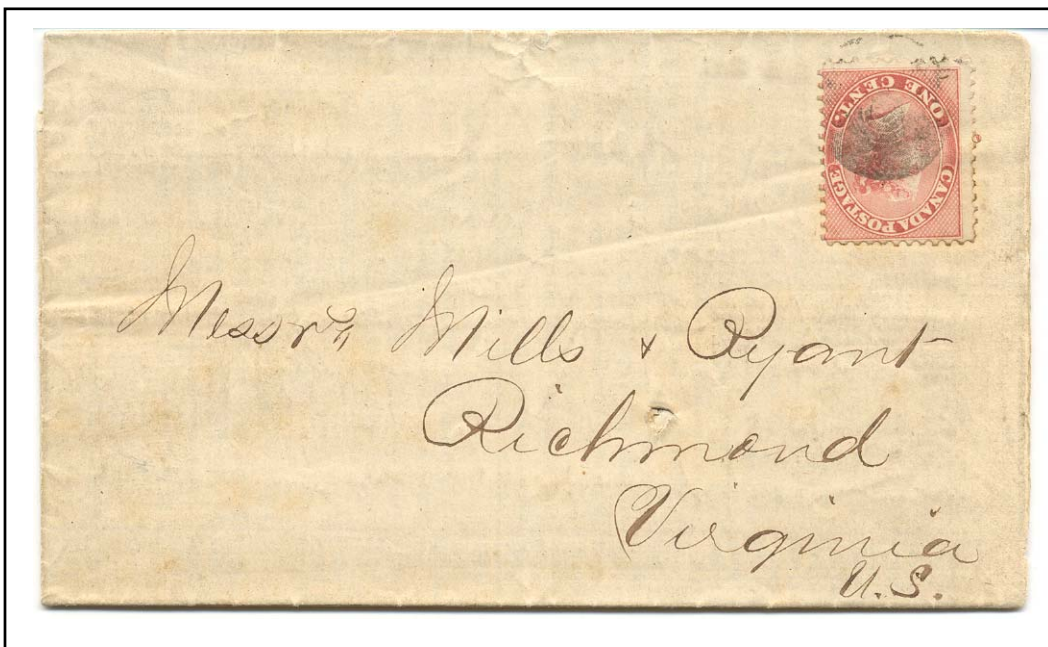 CANADA POSTAGE
ONE CENT.
Messrs Mills & Ryant
Richmond
Virginia
U.S.